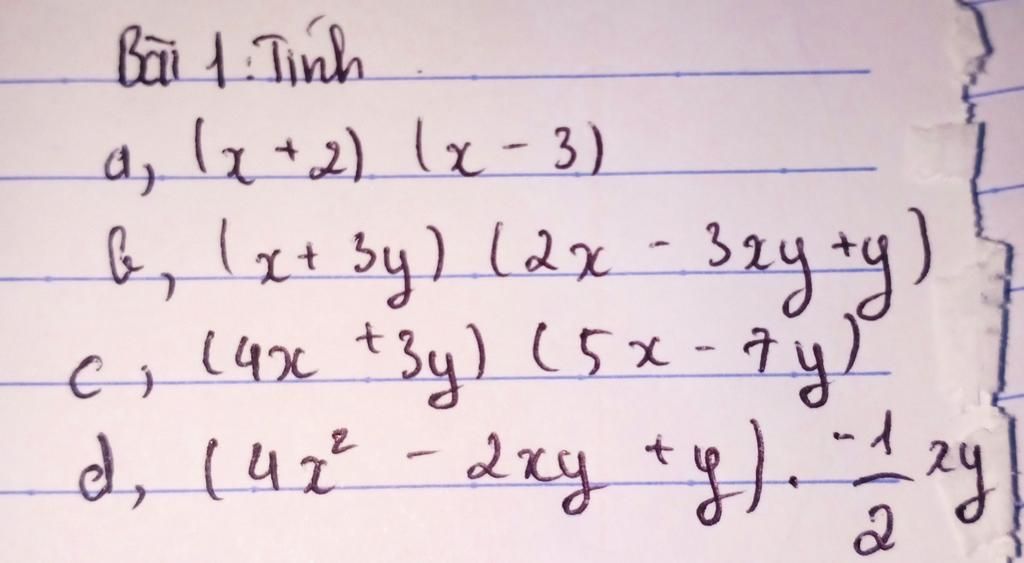 Bài 1: Tính
a, (x + 2) (x - 3)
b, (x + 3y) (2x - 3xy + y)
c, (4x + 3y) (5x - 7y)
d, (4x² - 2xy + y) . -1/2 xy